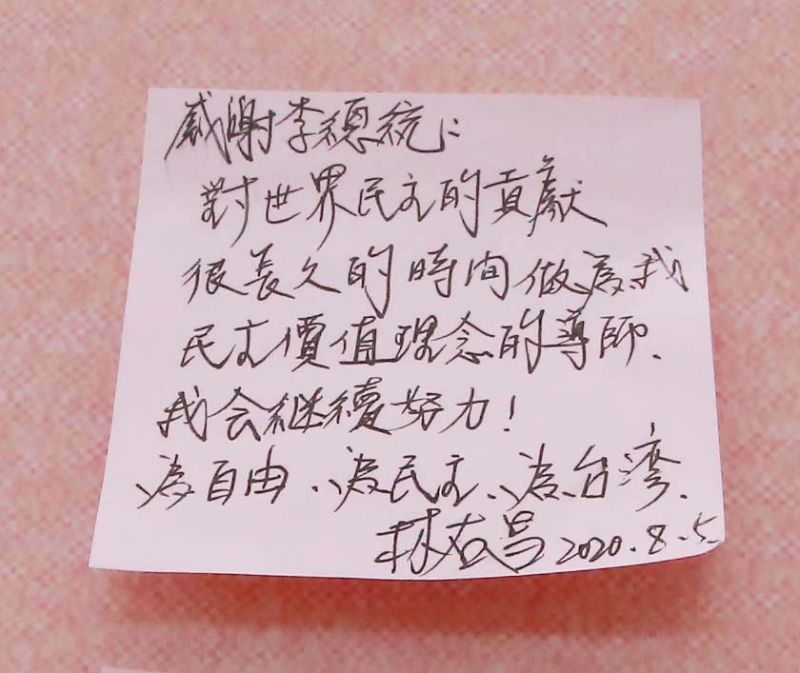 感謝李總統:
對世界民主的貢獻
很長久的時間做為我
民主價值理念的導師、
我会继續努力!
為自由、為民主、為台湾、
林右昌 2020.8.5